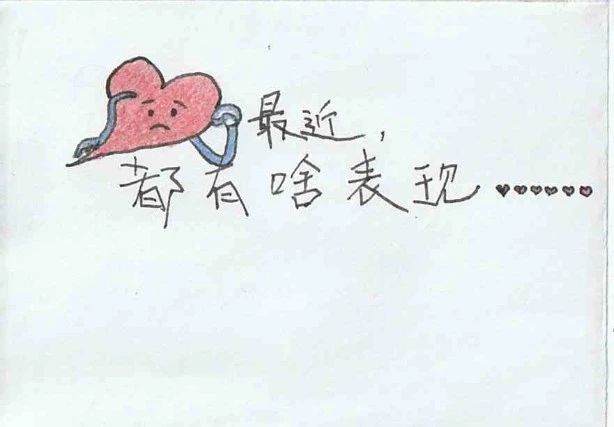 最近，
都有啥表现……